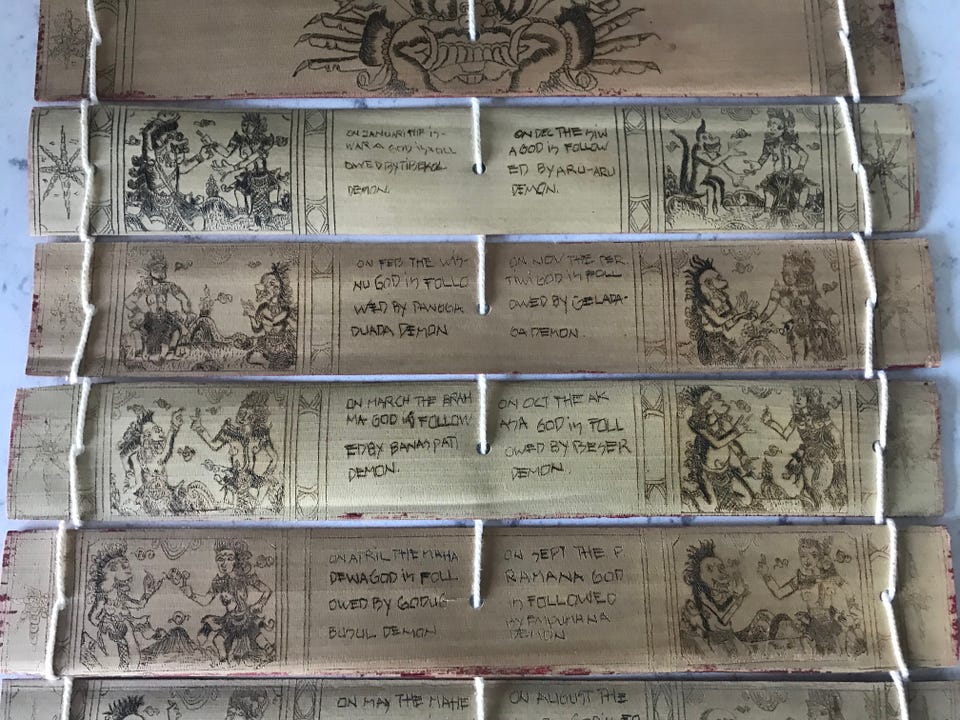 ON JANUARI THE IS-
WARA GOD is FOLL
OWED BY TIBEROL
DEMON.
ON DEC THE SIW
A GOD is FOLLOW
ED BY ARU-ARU
DEMON.
ON FEB THE WIS-
NU GOD is FOLLO
WED BY PANGGA
DUADA DEMON
ON NOV THE PER
TIWI GOD is FOLL
OWED BY GELADA-
GA DEMON.
ON MARCH THE BRAH
MA GOD is FOLLOW
ED BY BANAS PATI
DEMON.
ON OCT THE AK
ASA GOD is FOLL
OWED BY BESER
DEMON.
ON APRIL THE MAHA
DEWA GOD is FOLL
OWED BY GODUG
BUSUL DEMON
ON SEPT THE P
RAMANA GOD
is FOLLOWED
BY EMPUHANA
DEMON
ON MAY THE MAHE
ON AUGUST THE